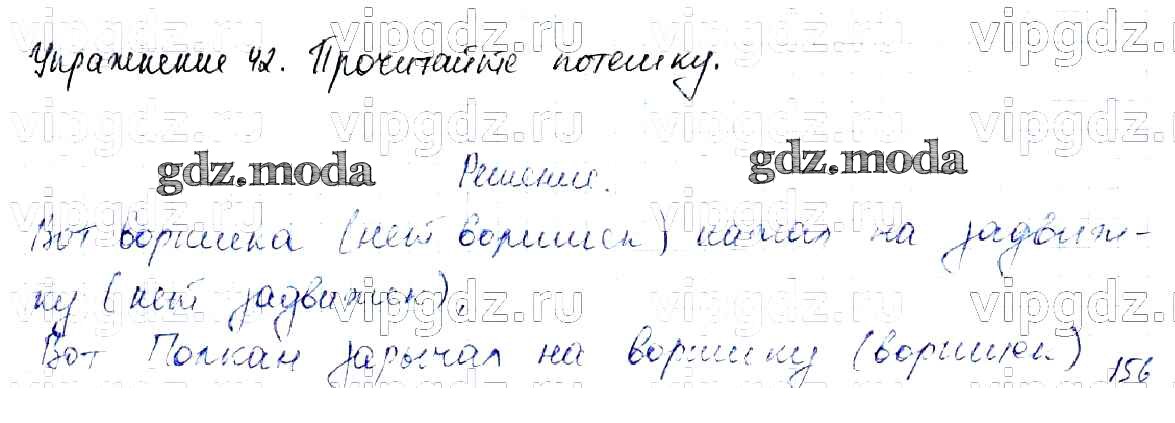 Упражнение 42. Прочитайте потешку.
gdz.moda Решение. gdz.moda
Вот воришка (нет воришек) нажал на задвиж-
ку (нет задвижек),
Вот Полкан зарычал на воришку (воришек) 156
vipgdz.ru